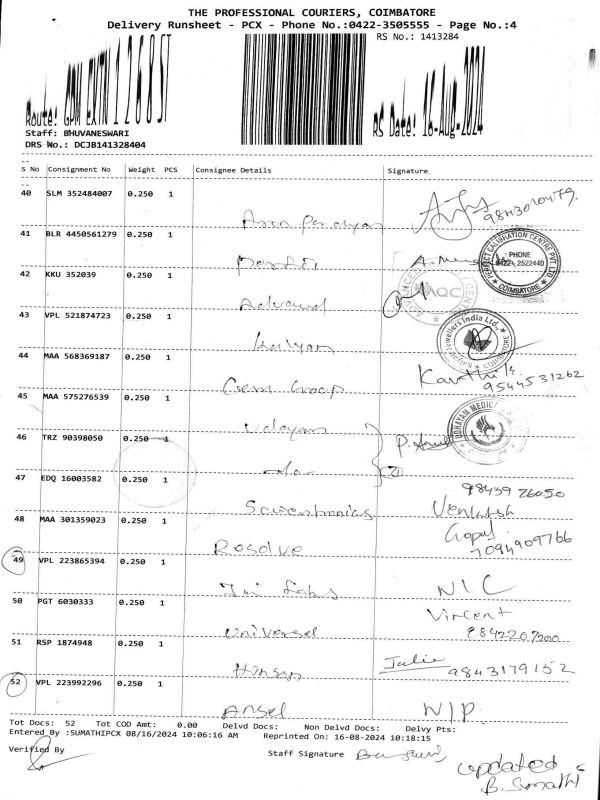 THE PROFESSIONAL COURIERS, COIMBATORE
Delivery Runsheet - PCX - Phone No.:0422-3505555 - Page No.:4
RS No.: 1413284
Route: GPM EXTN 1 2 6 8 ST
RS Date: 16-Aug-2024
Staff: BHUVANESWARI
DRS No.: DCJB141328404
S No Consignment No Weight PCS Consignee Details Signature
40 SLM 352484007 0.250 1
9843010479
41 BLR 4450561279 0.250 1
PERFECT CALIBRATION CENTRE PVT. LTD
PHONE
0422- 2522440
COIMBATORE
42 KKU 352039 0.250 1
Advanced
AQC
43 VPL 521874723 0.250 1
Kalyan
Jewellers India Ltd.,
COIMBATORE
44 MAA 568369187 0.250 1
Gem Group
Karthik
9544531262
45 MAA 575276539 0.250 1
Udayam
UDHAYAM MEDICAL
46 TRZ 90398050 0.250 1
47 EDQ 16003582 0.250 1
98439 26050
Venkatesh
48 MAA 301359023 0.250 1
Resolve
Gopal
7094909766
49 VPL 223865394 0.250 1
Jai Labs
N/C
50 PGT 6030333 0.250 1
Universal
Vincent
9842207200
51 RSP 1874948 0.250 1
Julie
9843179152
52 VPL 223992296 0.250 1
Ansel
N/P
Tot Docs: 52 Tot COD Amt: 0.00 Delvd Docs: Non Delvd Docs: Delvy Pts:
Entered By :SUMATHIPCX 08/16/2024 10:06:16 AM Reprinted On: 16-08-2024 10:18:15
Verified By
Staff Signature
updated
B. Sumathi